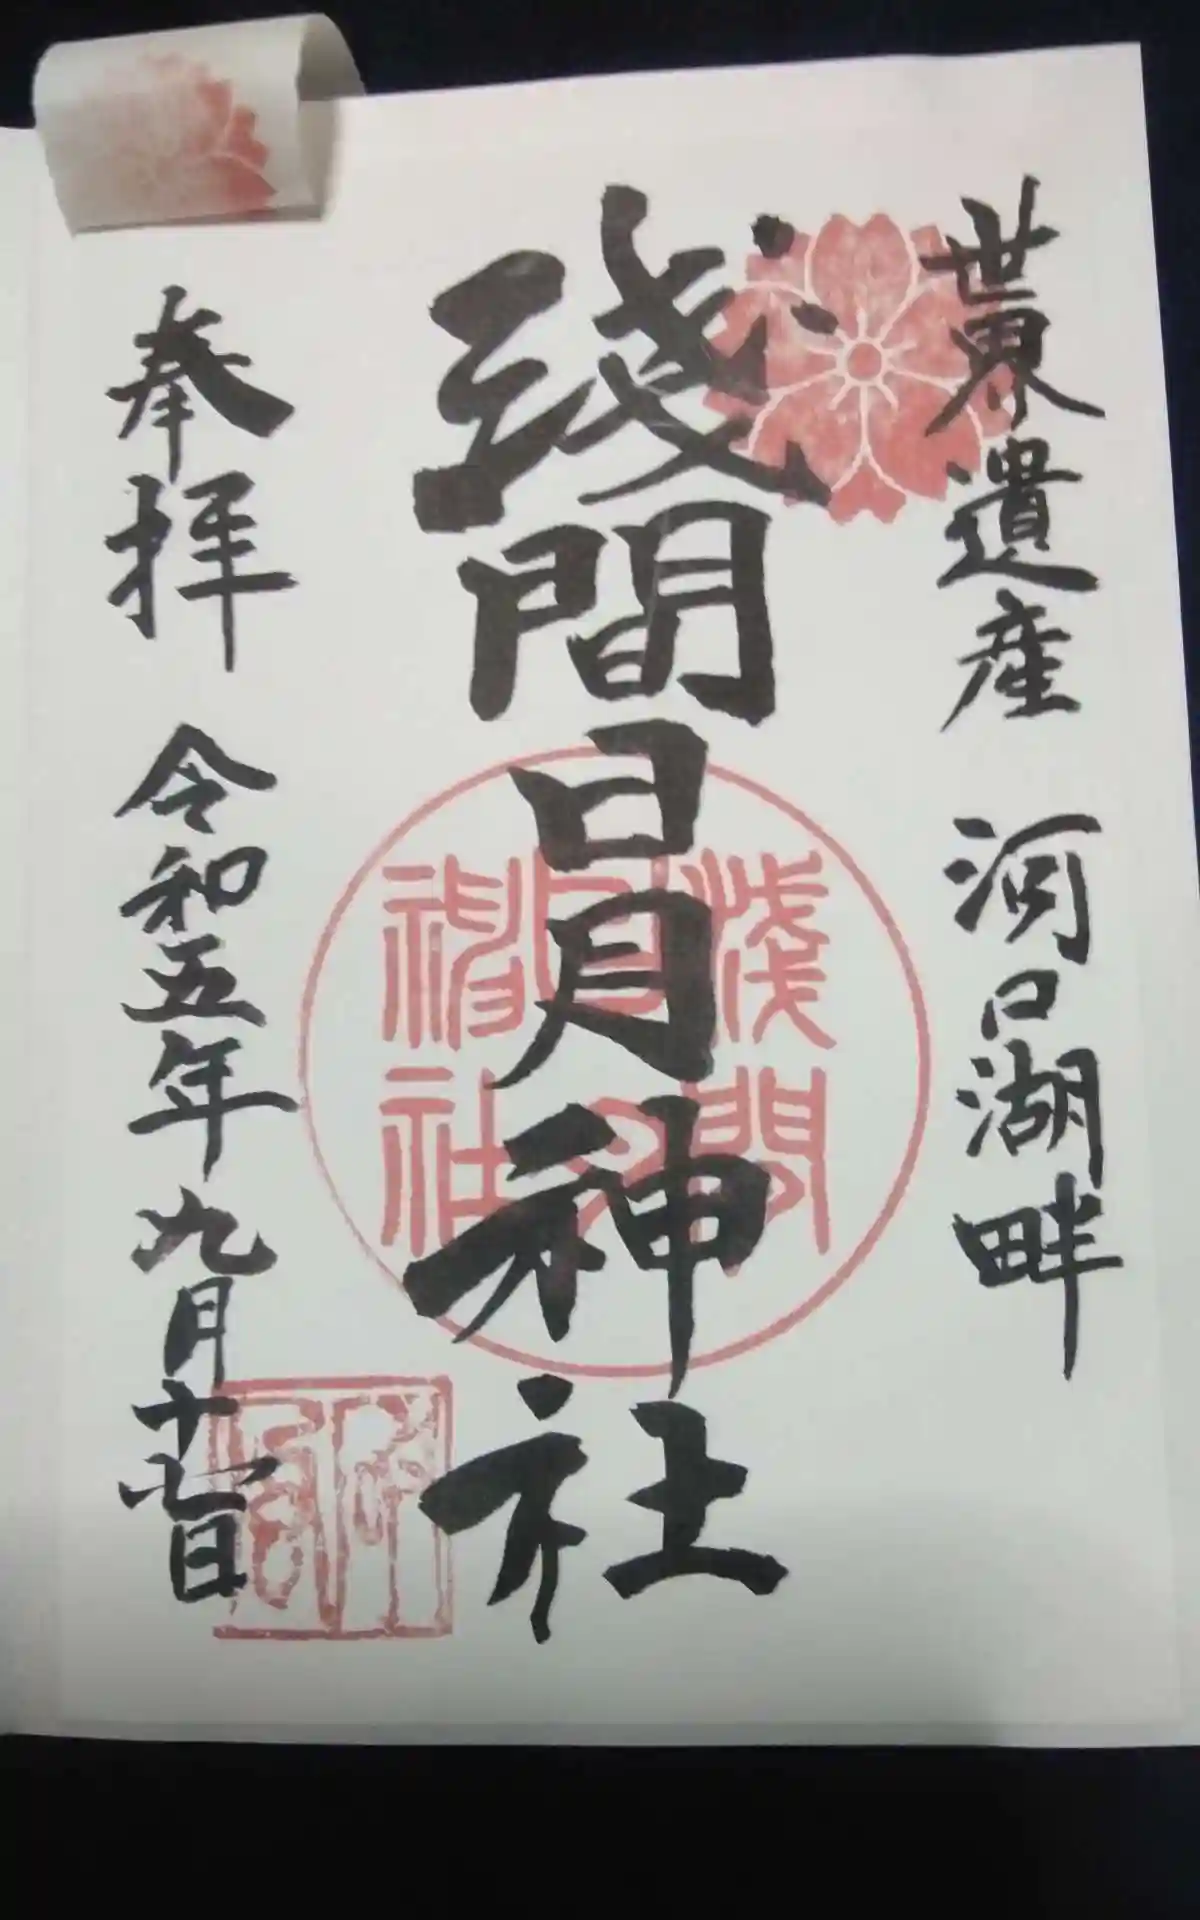 世界遺産 河口湖畔
淺間日月神社
淺間
神社
奉拝 令和五年九月十七日